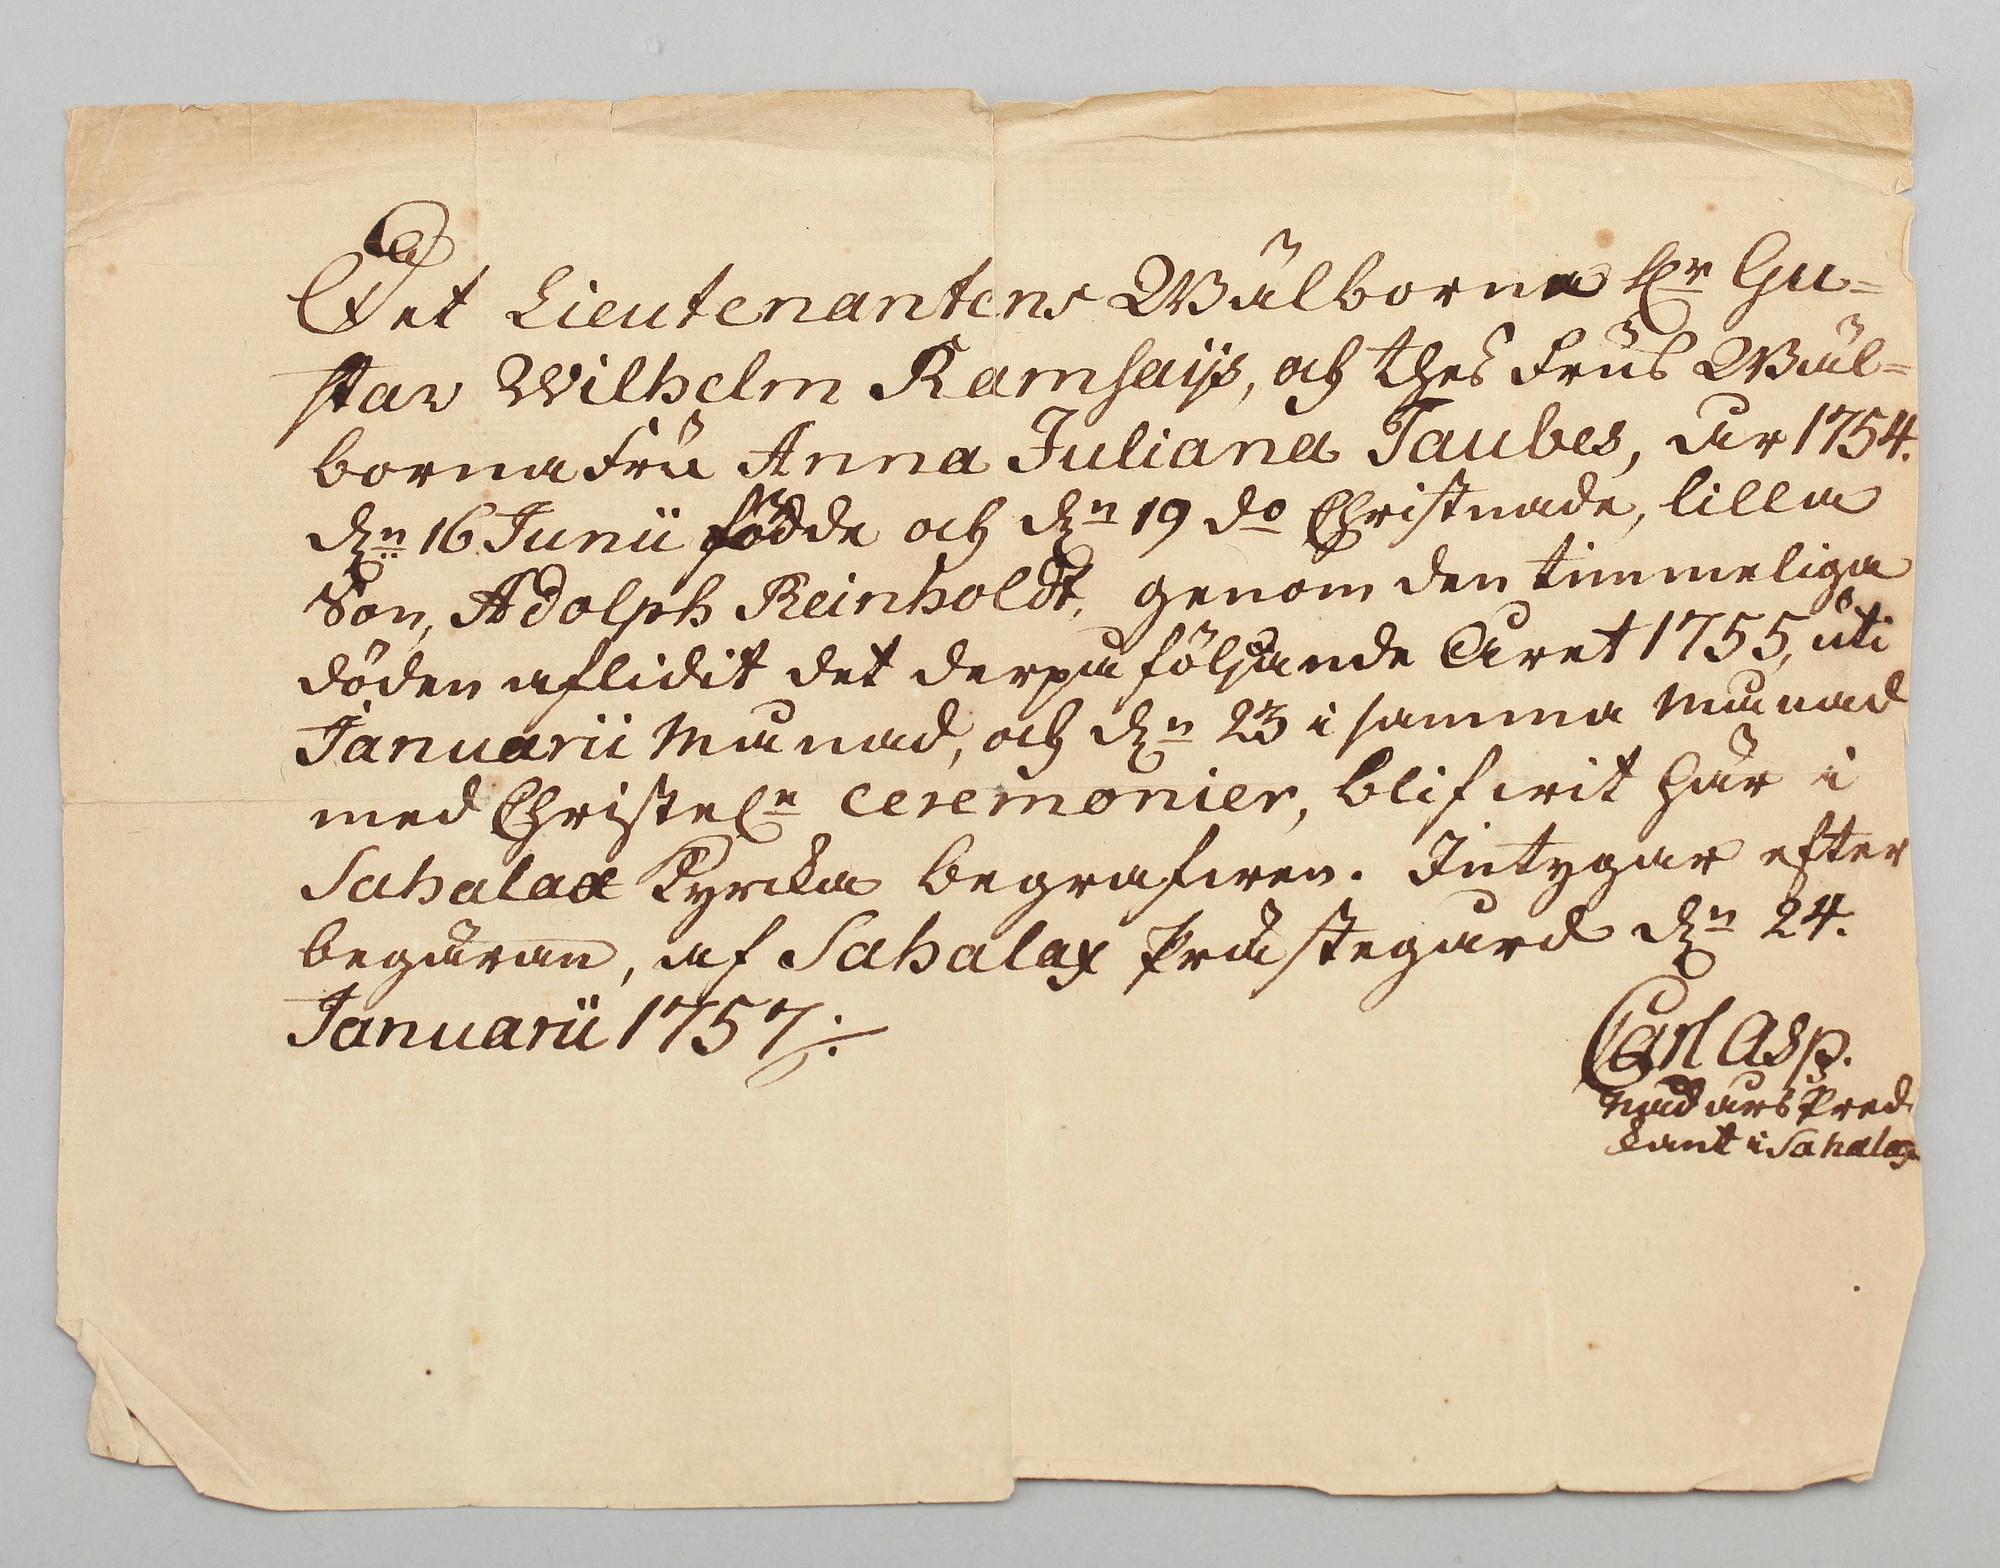 Det Lieutenantens Wälborne Hr Gu=
stav Wilhelm Ramsaijs, och thes Frus Wäl=
borna Fru Anna Juliana Taubes, år 1754.
den 16 Junii födde och den 19 do Christnade, lilla
Son, Adolph Reinholdt, genom den timmeliga
döden aflidit det derpå följande Året 1755, uti
Januarii Månad, och den 23 i samma Månad
med Christeln Ceremonier, blifwit här i
Sahalax Kyrcka begrafwen. Intygar efter
begäran, af Sahalax Prästegård den 24.
Januarii 1757.
Carl Asp.
Nådårs Pred
kant i Sahalax